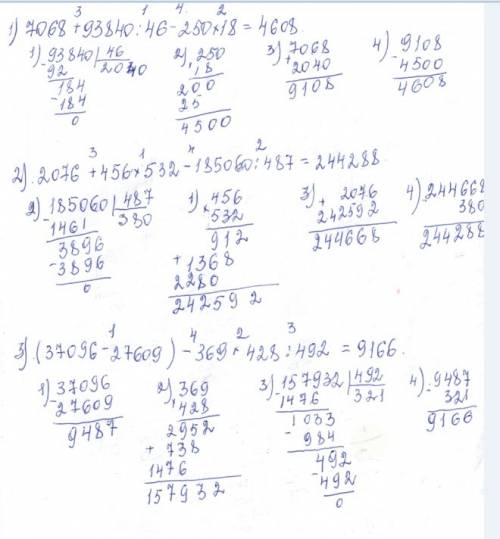 3 1 4 2
1) 7068 + 93840 : 46 - 250 × 18 = 4608.
1) - 93840 | 46 2) × 250 3) + 7068 4) - 9108
92 2040 18 2040 4500
184 200 9108 4608
- 184 25
0 4500
3 1 4 2
2). 2076 + 456 × 532 - 185060 : 487 = 244288.
2) - 185060 | 487 1) × 456 3) + 2076 4) - 244668
1461 380 532 242592 380
3896 912 244668 244288
- 3896 + 1368
0 2280
242592
1 4 2 3
3) (37096 - 27609) - 369 × 428 : 492 = 9166.
1) - 37096 2) × 369 3) - 157932 | 492 4) - 9487
27609 428 1476 321 321
9487 2952 1033 9166
+ 738 - 984
1476 492
157932 - 492
0